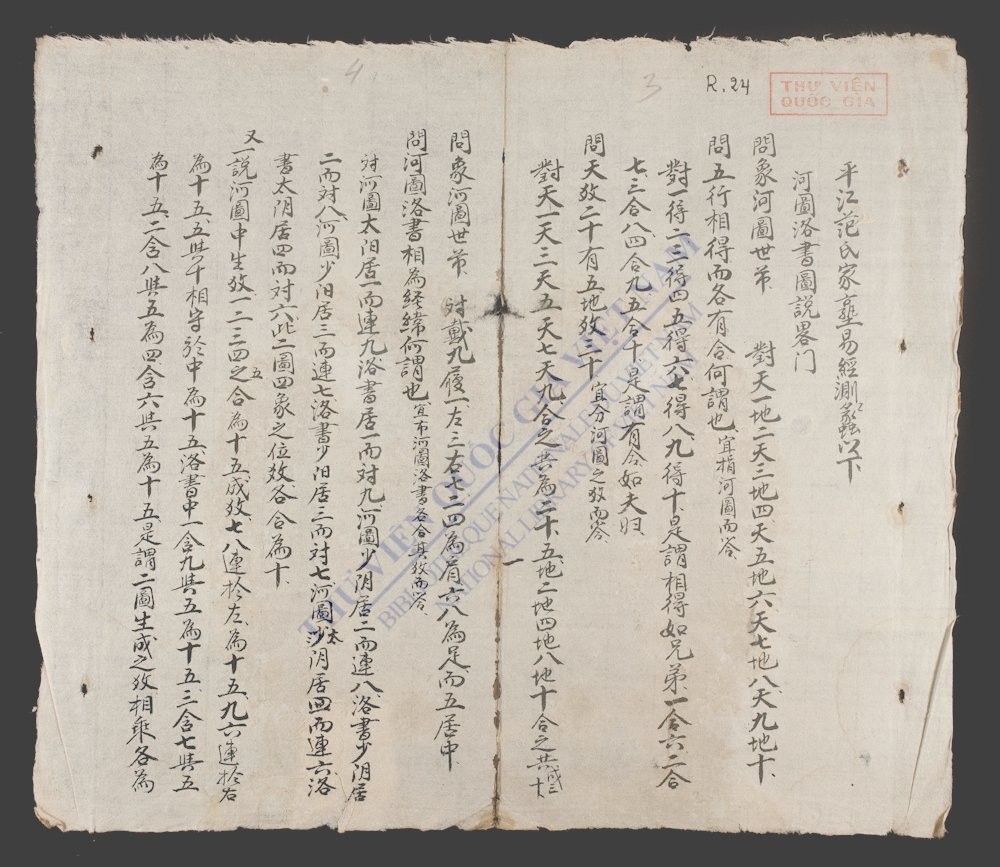 R.24
THƯ VIỆN
QUỐC GIA
3
4
平江范氏家塾易經測蠡以下
河圖洛書圖說畧门
問象河圖世苐 對天一地二天三地四天五地六天七地八天九地十
問五行相得而各有合何謂也宜指河圖而答
對一得二三得四五得六七得八九得十是謂相得如兄弟一合六二合
七三合八四合九五合十是謂有合如夫妇
問天数二十有五地数三十宜分河圖之数而答
對天一天三天五天七天九合之共為二十五地二地四地八地十合之共三十
一
問象河圖世苐 对戴九履一左三右七二四為肩六八為足而五居中
問河圖洛書相為經緯何謂也宜布河圖洛書各合其数而答
对河圖太阳居一而連九洛書居一而对九河圖少阴居二而連八洛書少阴居
二而对八河圖少阳居三而連七洛書少阳居三而对七河圖太阴居四而連六洛
書太阴居四而对六此二圖四象之位数各合為十
又一說河圖中生数一二三四五之合為十五成数七八連於左為十五九六連於右
為十五五与十相守於中為十五洛書中一含九与五為十五三含七与五
為十五二含八与五為四含六与五為十五是謂二圖生成之数相乘各為
THƯ VIỆN QUỐC GIA VIỆT NAM
BIBLIOTHEQUE NATIONALE DU VIETNAM
NATIONAL LIBRARY OF VIETNAM